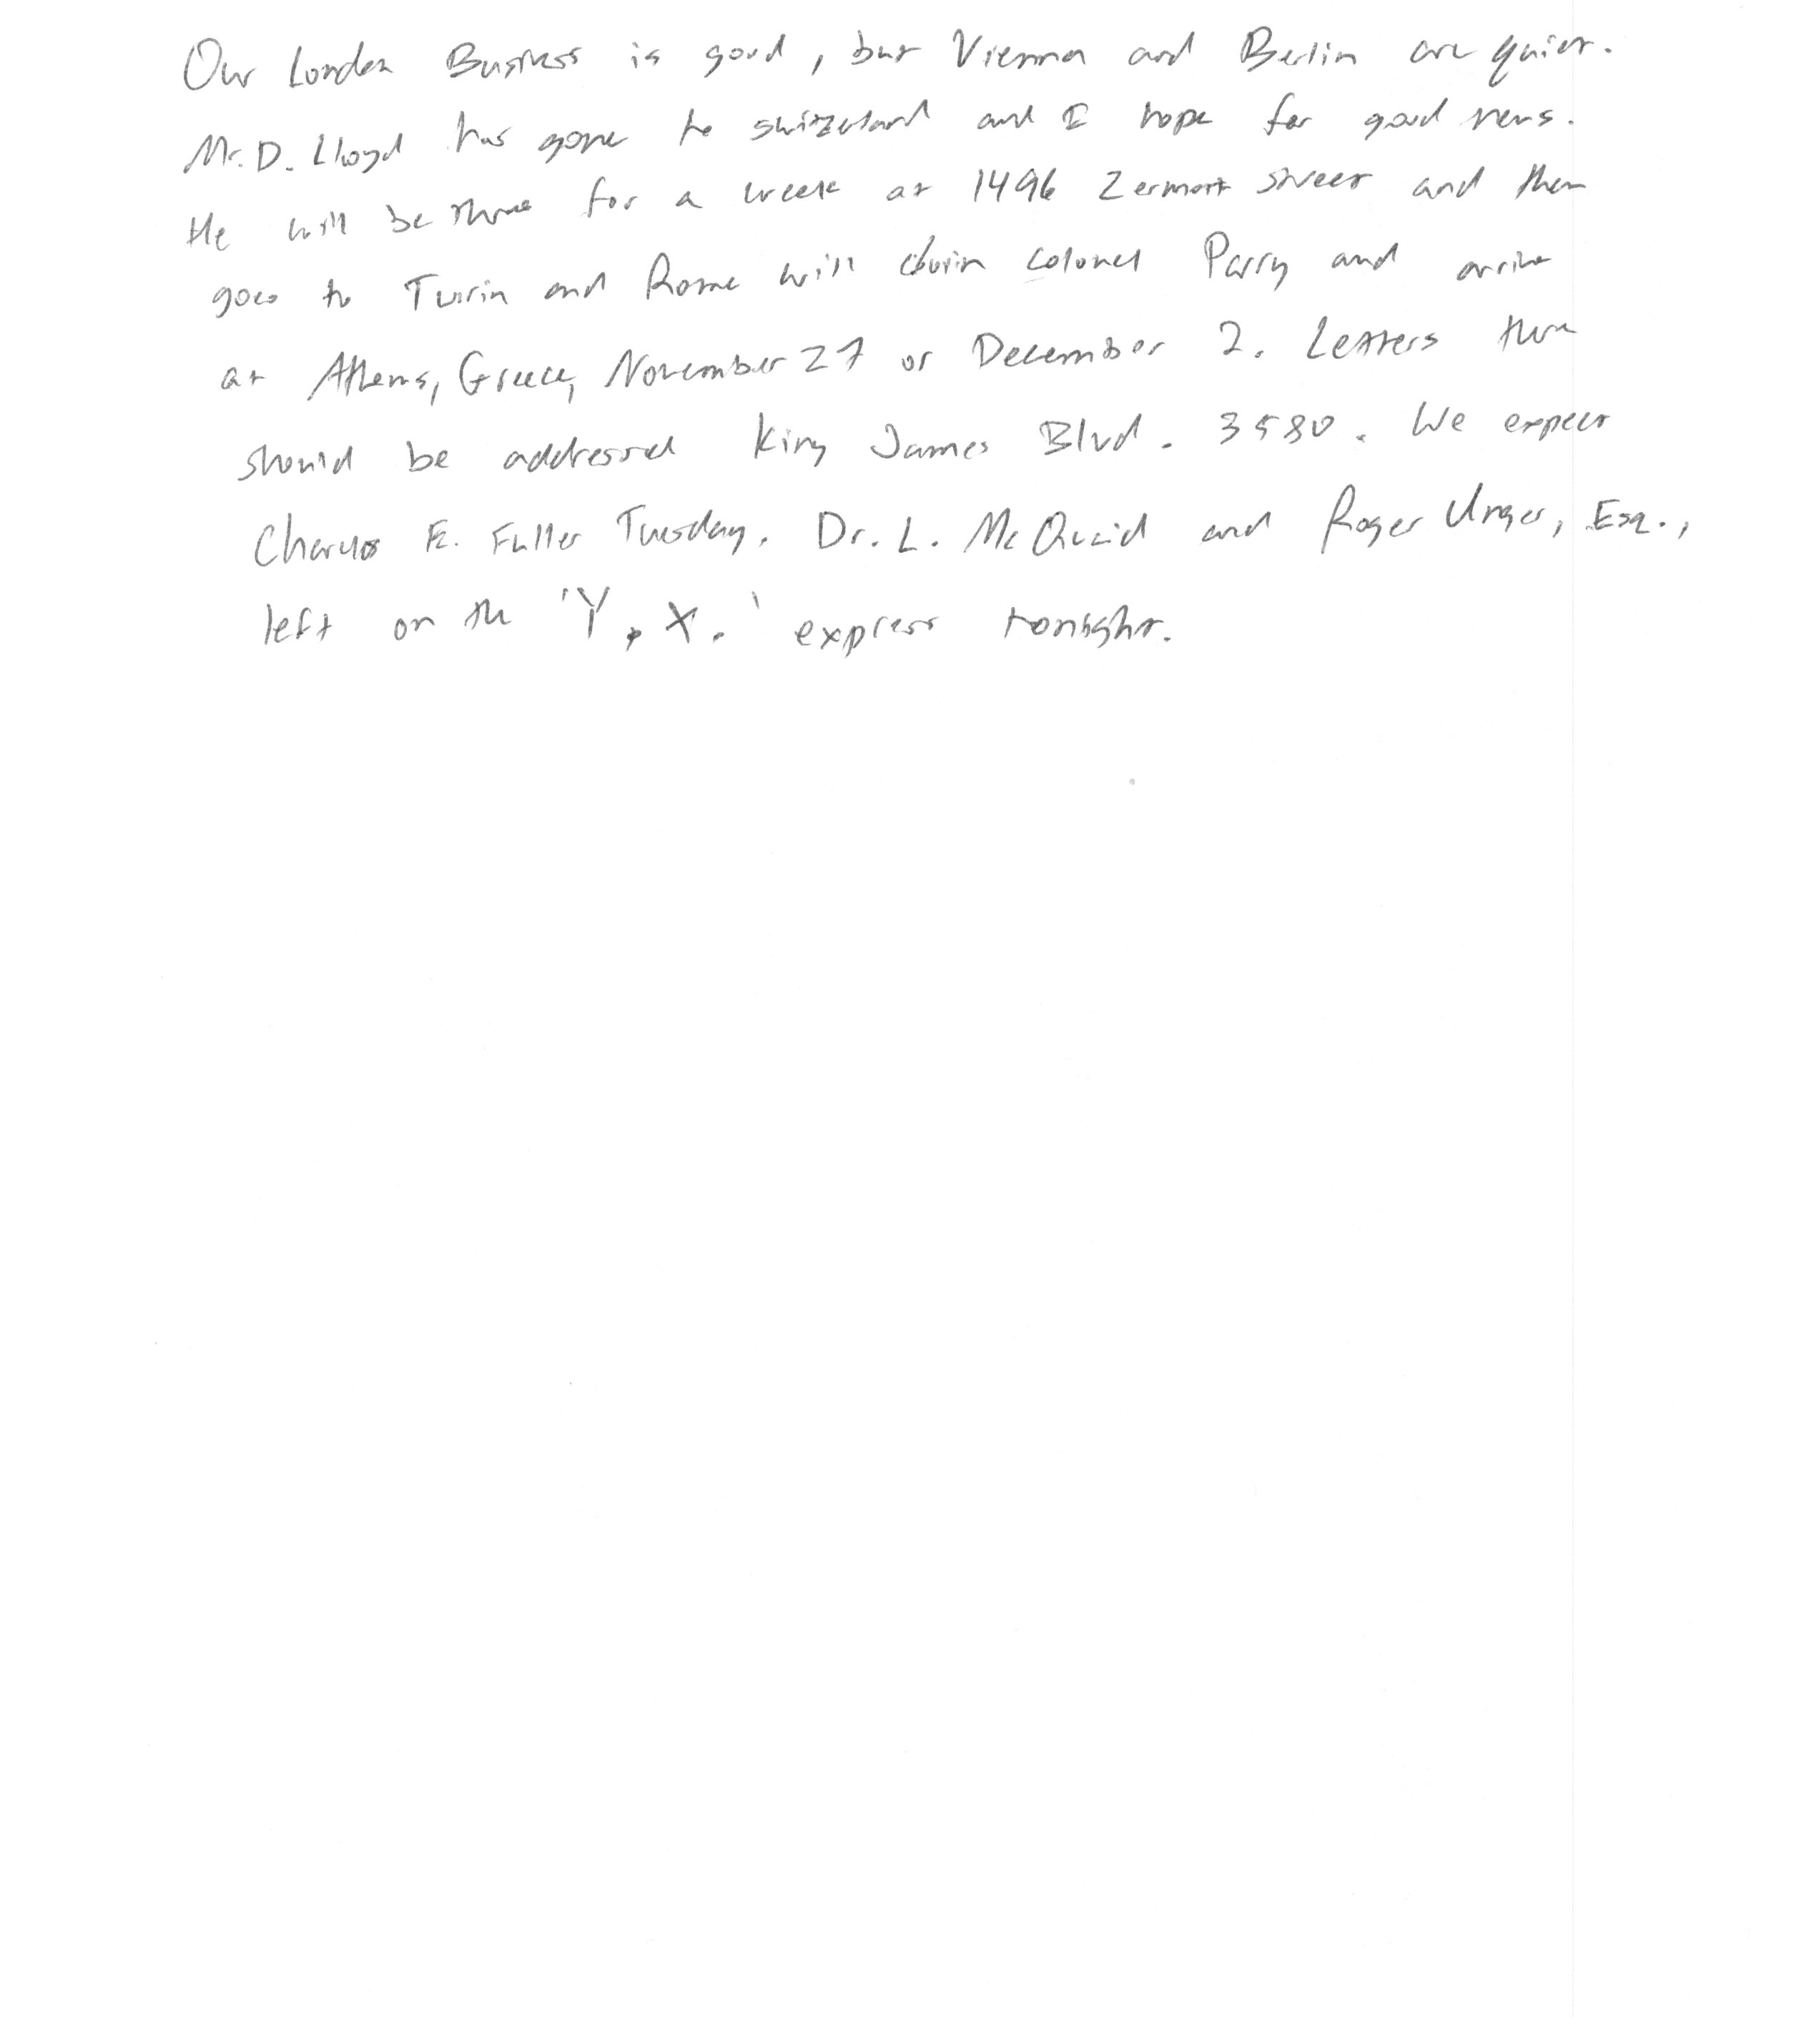 Our London Business is good, but Vienna and Berlin are quiet.
Mr. D. Lloyd has gone to Switzerland and I hope for good news.
He will be there for a week at 1496 Zermott street and then
goes to Turin and Rome will join Colonel Parry and arrive
at Athens, Greece, November 27 or December 2. Letters there
should be addressed King James Blvd. 3580. We expect
Charles E. Fuller Tuesday. Dr. L. McQuaid and Roger Unger, Esq.,
left on the 'Y.X.' express tonight.